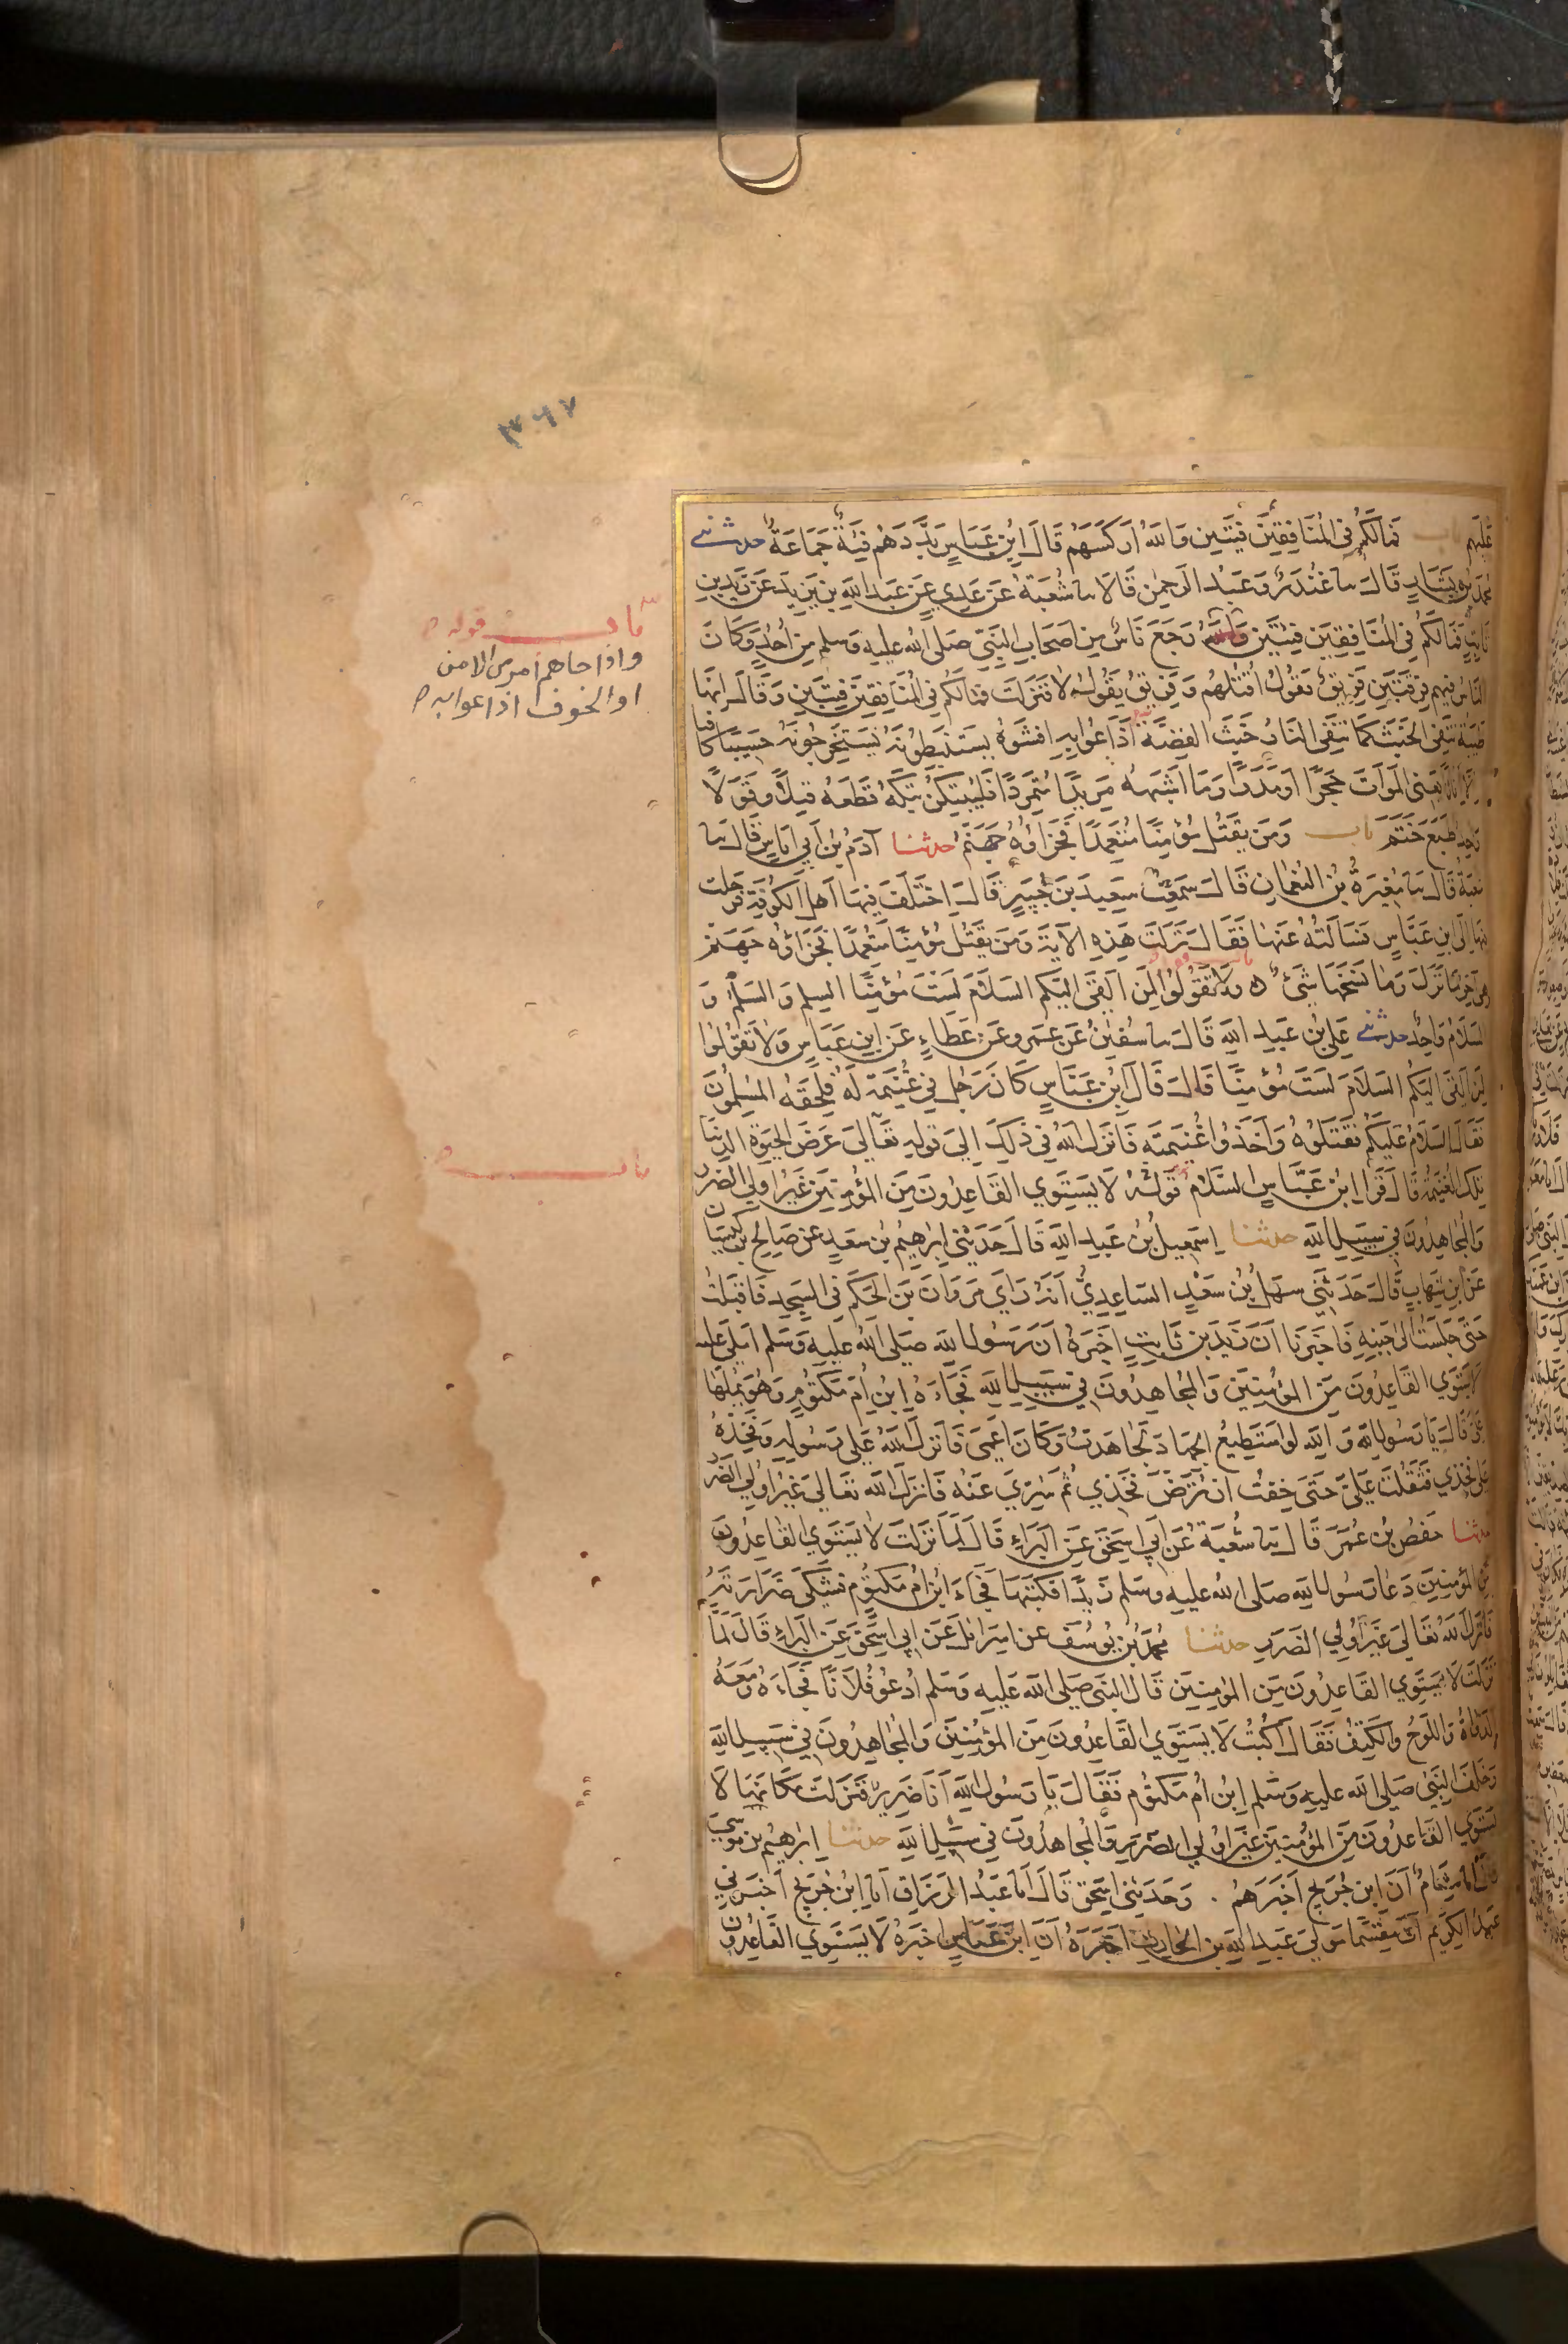 ٣٠٦٧
عليهم باب فمالكم فى المنافقين فيتين والله اركسهم قال ابن عباس بددهم فية جماعة حدثنى
محمد بن بشار قال سا غندر وعبد الرحمن قالا سا شعبة عن عدي عن عبد الله بن يزيد عن زيد بن
ثابت فمالكم فى المنافقين فيتين رجع ناس من اصحاب النبى صلى الله عليه وسلم من احد وكان
الناس فيهم فرقتين فريق يقول اقتلهم وفريق يقول لا فنزلت فمالكم فى المنافقين فيتين وقال انها
طيبة تنفى الخبث كما تنفى النار خبث الفضة اذاعوا به افشوه يستنبطونه يستخرجونه حسيبا كافيا
الا اناثا يعنى الموات حجرا او مدرا وما اشبهه مريدا متمردا فليبتكن بتكه قطعه قيلا وقولا
واحد طبع ختم باب ومن يقتل مؤمنا متعمدا فجزاؤه جهنم حدثنا آدم بن ابي اياس قال سا
شعبة قال سا مغيرة بن النعمان قال سمعت سعيد بن جبير قال اختلف فيها اهل الكوفة فرحلت
فيها الى ابن عباس فسالته عنها فقال نزلت هذه الاية ومن يقتل مؤمنا متعمدا فجزاؤه جهنم
هى آخر ما نزل وما نسخها شئ ولا تقولوا لمن القى اليكم السلام لست مؤمنا السلم والسلم و
السلام واحد حدثنى على بن عبد الله قال سا سفين عن عمرو عن عطاء عن ابن عباس ولا تقولوا
لمن القى اليكم السلام لست مؤمنا قال قال ابن عباس كان رجل في غنيمة له فلحقه المسلمون
فقال السلام عليكم فقتلوه واخذوا غنيمته فانزل الله فى ذلك الى قوله تعالى عرض الحيوة الدنيا
تلك الغنيمة قال قرا ابن عباس السلام قوله لا يستوي القاعدون من المؤمنين غير اولى الضرر
والمجاهدون في سبيل الله حدثنا اسمعيل بن عبد الله قال حدثني ابرهيم بن سعد عن صالح بن كيسان
عن ابن شهاب قال حدثني سهل بن سعد الساعدي انه راي مروان بن الحكم فى المسجد فاقبلت
حتى جلست الى جنبه فاخبرنا ان زيد بن ثابت اخبره ان رسول الله صلى الله عليه وسلم املى عليه
لا يستوي القاعدون من المؤمنين والمجاهدون في سبيل الله فجاءه ابن ام مكتوم وهو يملها
على قال يا رسول الله والله لو استطيع الجهاد لجاهدت وكان اعمى فانزل الله على رسوله وفخذه
على فخذي فثقلت علي حتى خفت ان ترض فخذي ثم سري عنه فانزل الله تعالى غير اولي الضرر
حدثنا حفص بن عمر قال سا شعبة عن ابي اسحق عن البراء قال لما نزلت لا يستوي القاعدون
من المؤمنين دعا رسول الله صلى الله عليه وسلم زيدا فكتبها فجاء ابن ام مكتوم فشكى ضرارته
فانزل الله تعالى غير اولي الضرر حدثنا محمد بن يوسف عن اسرائل عن ابي اسحق عن البراء قال لما
نزلت لا يستوي القاعدون من المؤمنين قال النبى صلى الله عليه وسلم ادعو فلانا فجاءه ومعه
الدواة واللوح والكتف فقال اكتب لا يستوي القاعدون من المؤمنين والمجاهدون في سبيل الله
وخلف النبى صلى الله عليه وسلم ابن ام مكتوم فقال يا رسول الله انا ضرير فنزلت مكانها لا
يستوي القاعدون من المؤمنين غير اولي الضرر والمجاهدون في سبيل الله حدثنا ابرهيم بن موسى
قال انا هشام ان ابن جريج اخبرهم . وحدثني اسحق قال انا عبد الرزاق انا ابن جريج اخبرني
عبد الكريم ان مقسما مولى عبد الله بن الحارث اخبره ان ابن عباس اخبره لا يستوي القاعدون
باب قوله
واذا جاهم امر من الامن
او الخوف اذاعوا به
باب